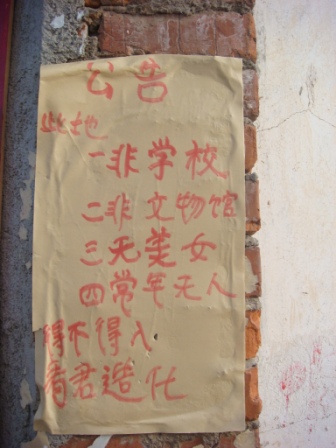 公告
此地
一非学校
二非文物馆
三无美女
四常年无人
得不得入
看君造化